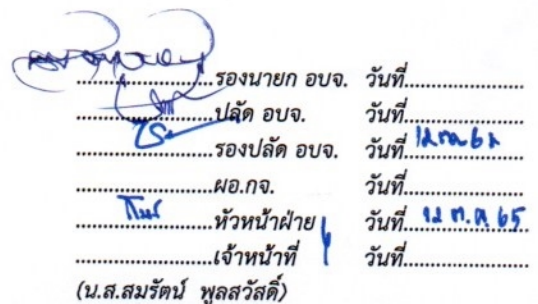 ....................รองนายก อบจ. วันที่....................
....................ปลัด อบจ. วันที่....................
....................รองปลัด อบจ. วันที่....................
....................ผอ.กจ. วันที่....................
....................หัวหน้าฝ่าย วันที่ 12 ต.ค 65
....................เจ้าหน้าที่ วันที่....................
(น.ส.สมรัตน์ พูลสวัสดิ์)